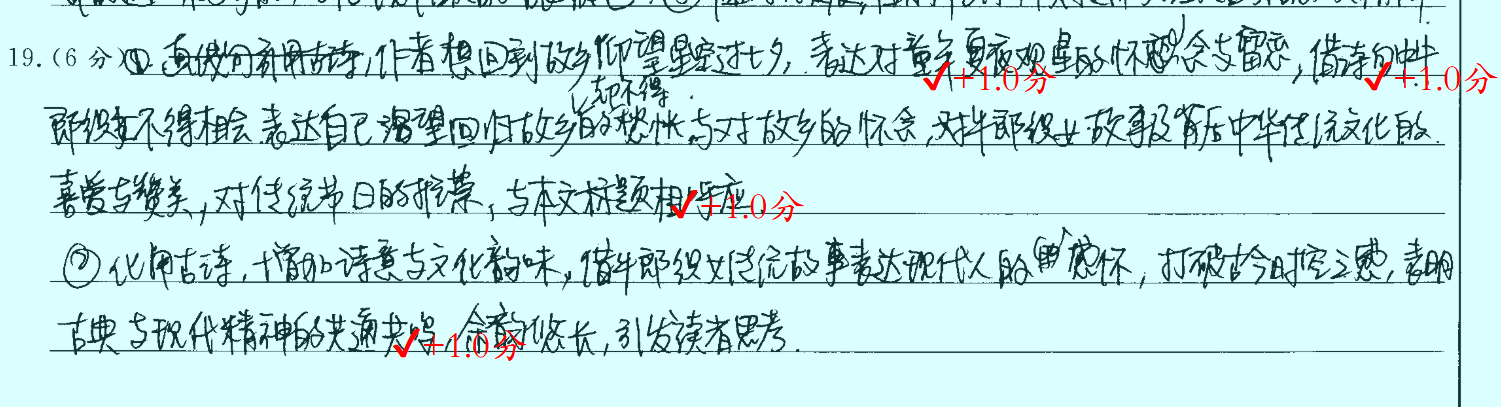 19.(6 分)① 直接引用古诗,作者想回到故乡仰望星空过七夕,表达对童年夏夜观星的怀念与留恋,借诗句中牛
✓+1.0分 ✓+1.0分
而不得
郎织女不得相会表达自己渴望回归故乡的惆怅与对故乡的怀念,对牛郎织女故事及背后中华传统文化的
喜爱与赞美,对传统节日的推崇,与本文标题相呼应.
✓+1.0分
②化用古诗,增加诗意与文化韵味,借牛郎织女传统故事表达现代人的感怀,打破古今时空之感,表明
古典与现代精神的共通共鸣,余韵悠长,引发读者思考.
✓+1.0分